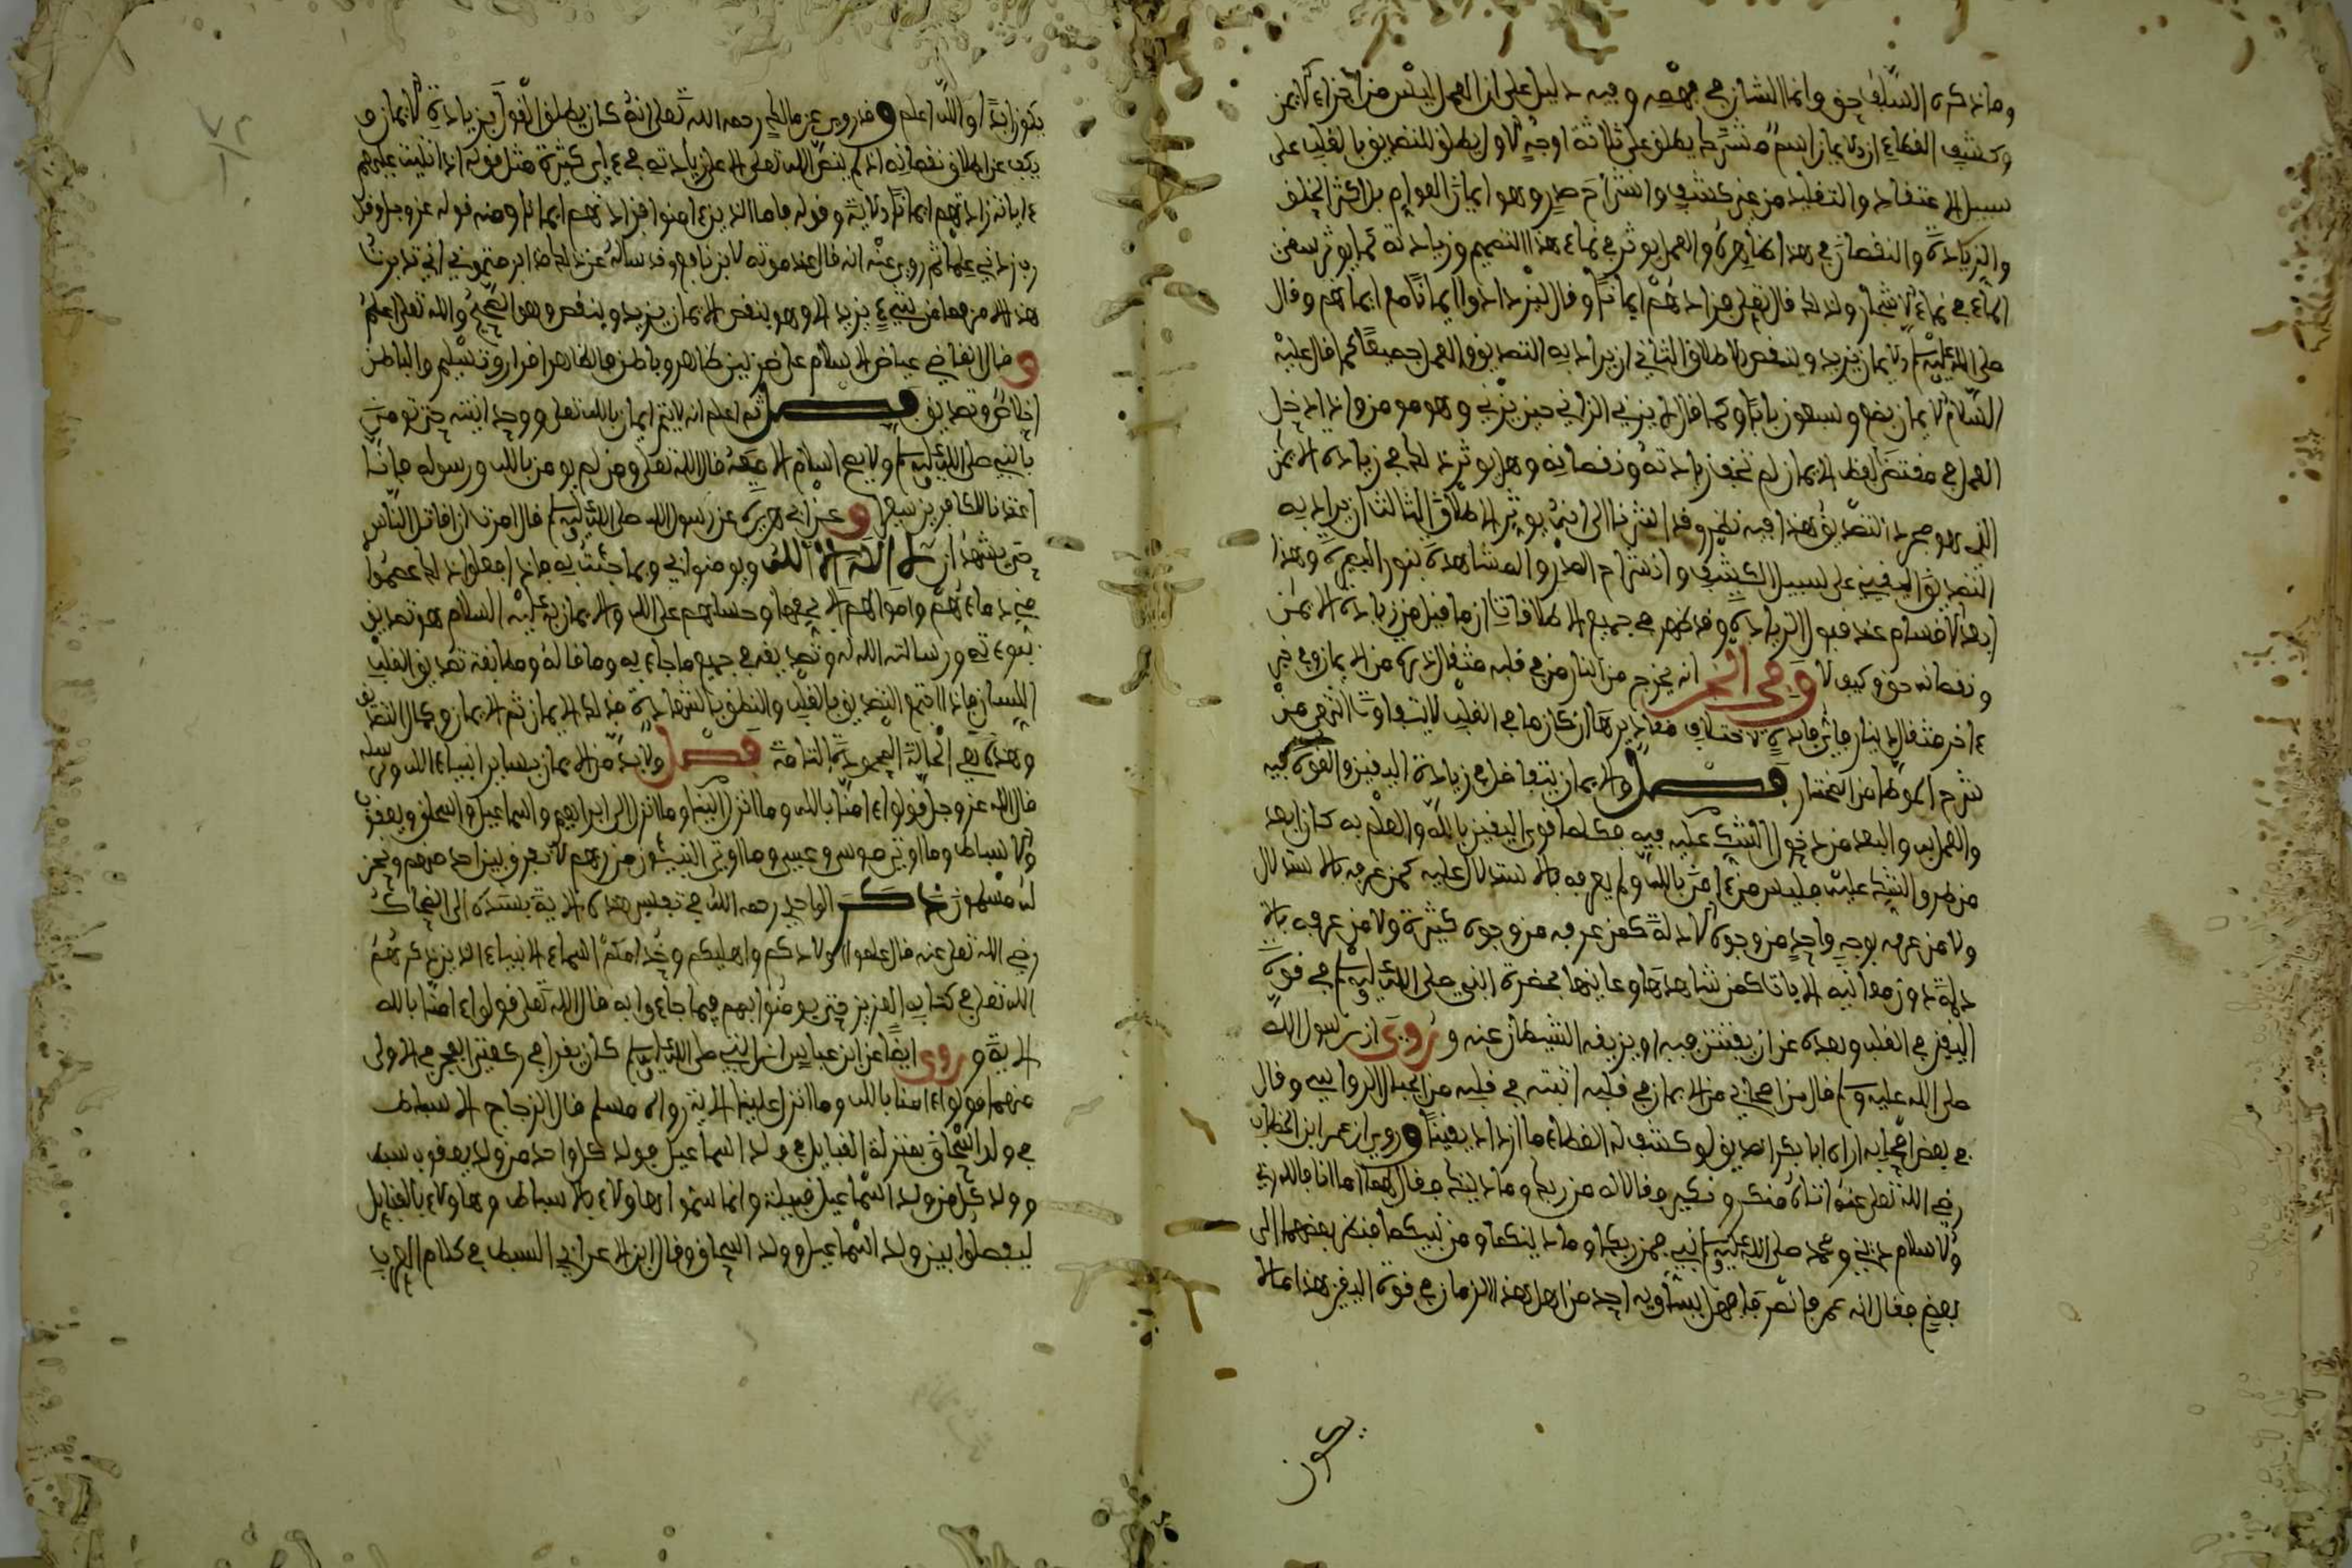 وما ذكره السلف حق وانما الشان في فهمه وفيه دليل على ان العمل ليس من اجزاء الايمن
وكشف الغطاء ان الايمان اسم مشترك يطلق على ثلاثة اوجه الاول يطلق للتصديق بالقلب على
سبيل الاعتقاد والتقليد من غير كشف وانشراح صدر وهو ايمان العوام بل اكثر الخلف
والزيادة والنقصان في هذا ظاهرة والعمل يوثر في نماء هذا التصميم وزيادته كما يوثر سقى
الماء في نماء الاشجار ولذلك قال تعلى فزادهم ايمانا وقال ليزدادوا ايمانا مع ايمانهم وقال
صلى الله عليه وسلم الايمان يزيد وينقص الاطلاق الثاني ان يراد به التصديق والعمل جميعا كما قال عليه
السلام الايمان بضع وسبعون بابا وكما قال لا يزني الزاني حين يزني وهو مومن واذا دخل
العمل في مقتضى لفظ الايمان لم تخف زيادته ونقصانه وهل يوثر ذلك في زيادة الايمن
الذي هو مجرد التصديق هذا فيه نظر وقد اشرنا الى انه يوثر الاطلاق الثالث ان يراد به
التصديق اليقيني على سبيل الكشف وانشراح الصدر والمشاهدة بنور البصيرة وهذا
ابعد الاقسام عند قبول الزيادة وقد ظهر في جميع الاطلاقات ان ما قيل من زيادة الايمن
ونقصانه حق وكيف لا وفي الخبر انه يخرج من النار من في قلبه مثقال ذرة من الايمان وفي خبر
ءاخر مثقال دينار فاي فايدة لاختلاف مقاديرها ان كان ما في القلب لا يتفاوت انتهى من
شرح الموطا من المختار فصل والايمان يتفاضل في زيادة اليقين والقوة فيه
والعمل به والبعد من دخول الشك عليه فيه فكلما قوى اليقين بالله والعلم به كان ابعد
من طرو الشك عليه فليس من ءامن بالله ولم يعرفه بالاستدلال عليه كمن عرفه بالاستدلال
ولا من عرفه بوجه واحد من وجوه الادلة كمن عرفه من وجوه كثيرة ولا من عرفه
دون معاينه الايات كمن شاهدها وعاينها بحضرة النبي صلى الله عليه وسلم في قوة
اليقين في القلب وبعده عن ان يفتتن فيه او يزيغه الشيطان عنه وروي ان رسول الله
صلى الله عليه وسلم قال من اصحابي من الايمان في قلبه اثبت في قلبه من الجبال الرواسي وقال
في بعض اصحابه اراه ابا بكر الصديق لو كشف له الغطاء ما ازداد يقينا وروي ان عمر ابن الخطاب
رضي الله تعلى عنه اتاه منكر ونكير فقالا له من ربك وما دينك فقال لهما اما انا فالله ربي
والاسلام ديني ومحمد صلى الله عليه وسلم نبيي فمن ربكما وما دينكما ومن نبيكما فنظر بعضهما الى
بعض فقال انه عمر فانصرفا فهل يساويه احد من اهل هذا الزمان في قوة اليقين هذا مالا
يكون
يكون ابدا والله اعلم وقد روي عن مالك رحمه الله تعلى انه كان يطلق القول بزيادة الايمان و
يكف عن اطلاق نقصانه اذ لم ينص الله تعلى الا على زيادته في ءاي كثيرة مثل قوله اذا تليت عليهم
ءاياته زادتهم ايمانا الاية وقوله فاما الذين ءامنوا فزادتهم ايمانا ومنه قوله عز وجل وقل
رب زدني علما ثم روي عنه انه قال عند موته لابن نافع وقد ساله عن ذلك قد ابرمتموني اني تدبرت
هذا الامر فما من شيء يزيد الا وهو ينقص الايمان يزيد وينقص وهو الصحيح والله تعلى اعلم
وقال القاضي عياض الاسلام على ضربين ظاهر وباطن فالظاهر اقرار وتسليم والباطن
اخلاص وتصديق فصل ثم اعلم انه لا يتم ايمان بالله تعلى ووحدانيته حتى تومن
بالنبي صلى الله عليه وسلم ولا يصح اسلام الا معه قال الله تعلى ومن لم يومن بالله ورسوله فانا
اعتدنا للكافرين سعيرا وعن ابي هريرة عن رسول الله صلى الله عليه وسلم قال امرت ان اقاتل الناس
حتى يشهد ان لا اله الا الله ويومنوا بي وبما جئت به فاذا فعلوا ذلك عصموا
مني دماءهم واموالهم الا بحقها وحسابهم على الله والايمان به عليه السلام هو تصديق
نبوءته ورسالته الله له وتصديقه في جميع ما جاء به وما قاله ومطابقة تصديق القلب
اللسان فاذا اجتمع التصديق بالقلب والنطق بالشهادة فذلك الايمان ثم الايمان وكمال التصديق
وهذه هي الحالة المحمودة التامة فصل ولا بد من الايمان بساير انبياء الله ورسله
قال الله عز وجل قولوا ءامنا بالله وما انزل الينا وما انزل الى ابراهيم واسماعيل واسحاق ويعقوب
والاسباط وما اوتي موسى وعيسى وما اوتي النبيئون من ربهم لا نفرق بين احد منهم ونحن
له مسلمون ذكر الواحدي رحمه الله في تفسير هذه الاية بسنده الى الضحاك
رضي الله تعلى عنه قال علموا اولادكم واهليكم وخدامكم اسماء الانبياء الذين ذكرهم
الله تعلى في كتابه العزيز حتى يومنوا بهم وبما جاءوا به قال الله تعلى قولوا ءامنا بالله
الاية وروى ايضا عن ابن عباس ان النبي صلى الله عليه وسلم كان يقرا في ركعتي الفجر في الاولى
منهما قولوا ءامنا بالله وما انزل علينا الاية رواه مسلم قال الزجاج الاسباط
في ولد اسحاق بمنزلة القبايل في ولد اسماعيل فولد كل واحد من ولد يعقوب سبط
وولد كل من ولد اسماعيل قبيلة وانما سموا هاولاء بالاسباط وهاولاء بالقبايل
ليفصلوا بين ولد اسماعيل وولد اسحاق وقال ابن الاعرابي السبط في كلام العرب